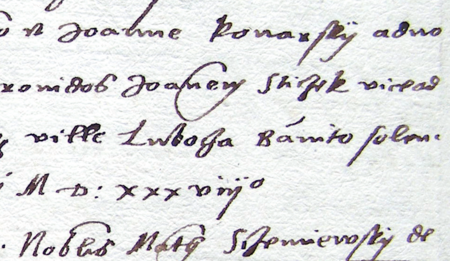 et Joanne Konarskÿ advo
rovidos Joanem Stiszek vicead
ville Lubocza Banito solen:
M D: xxxviijº
Nobłis Matß Siseniewskÿ de